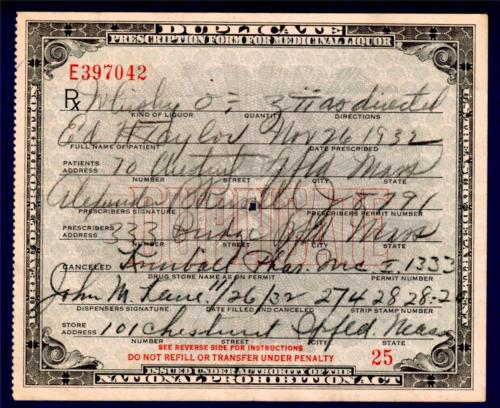 DUPLICATE
PRESCRIPTION FORM FOR MEDICINAL LIQUOR
E397042
Rx Whisky O as directed
KIND OF LIQUOR QUANTITY DIRECTIONS
Ed Taylor Nov 26 1932
FULL NAME OF PATIENT DATE PRESCRIBED
PATIENTS ADDRESS 10 Mass
NUMBER STREET CITY STATE
Alexander
PRESCRIBERS SIGNATURE PRESCRIBERS PERMIT NUMBER
PRESCRIBERS ADDRESS 333 Bridge Mass
NUMBER STREET CITY STATE
CANCELED Kimball Phar. Inc - 1333
DRUG STORE NAME AS ON PERMIT PERMIT NUMBER
John M. 11/26/32 274 28 28-2
DISPENSERS SIGNATURE DATE FILLED AND CANCELED STRIP STAMP NUMBER
STORE ADDRESS 101 Chestnut Spfld. Mass
NUMBER STREET CITY STATE
SEE REVERSE SIDE FOR INSTRUCTIONS
DO NOT REFILL OR TRANSFER UNDER PENALTY 25
ISSUED UNDER AUTHORITY OF THE
NATIONAL PROHIBITION ACT